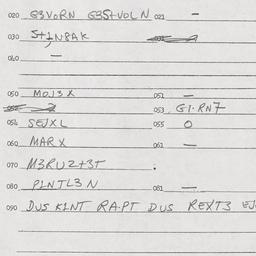 020 G3VORN G3StVOLN 021 –
030 St,N8AK
040 –
050 MOJ3X 051 –
053 G1·RN7
054 SEJXL 055 O
060 MARX 061 –
070 M3RUZ+3T
080 P1NTL3N 081 –
090 DUS K1NT RA·PT DUS REXT3